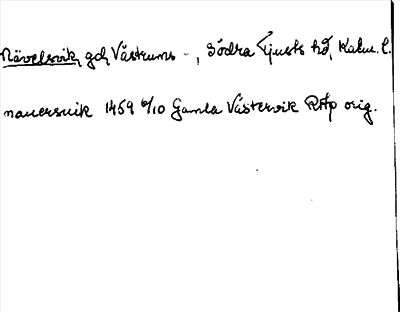 Nävelsvik, gd, Västrums -, Södra Tjusts hd, Kalm. l.
naversuik 1459 6/10 Gamla Västervik RAp orig.